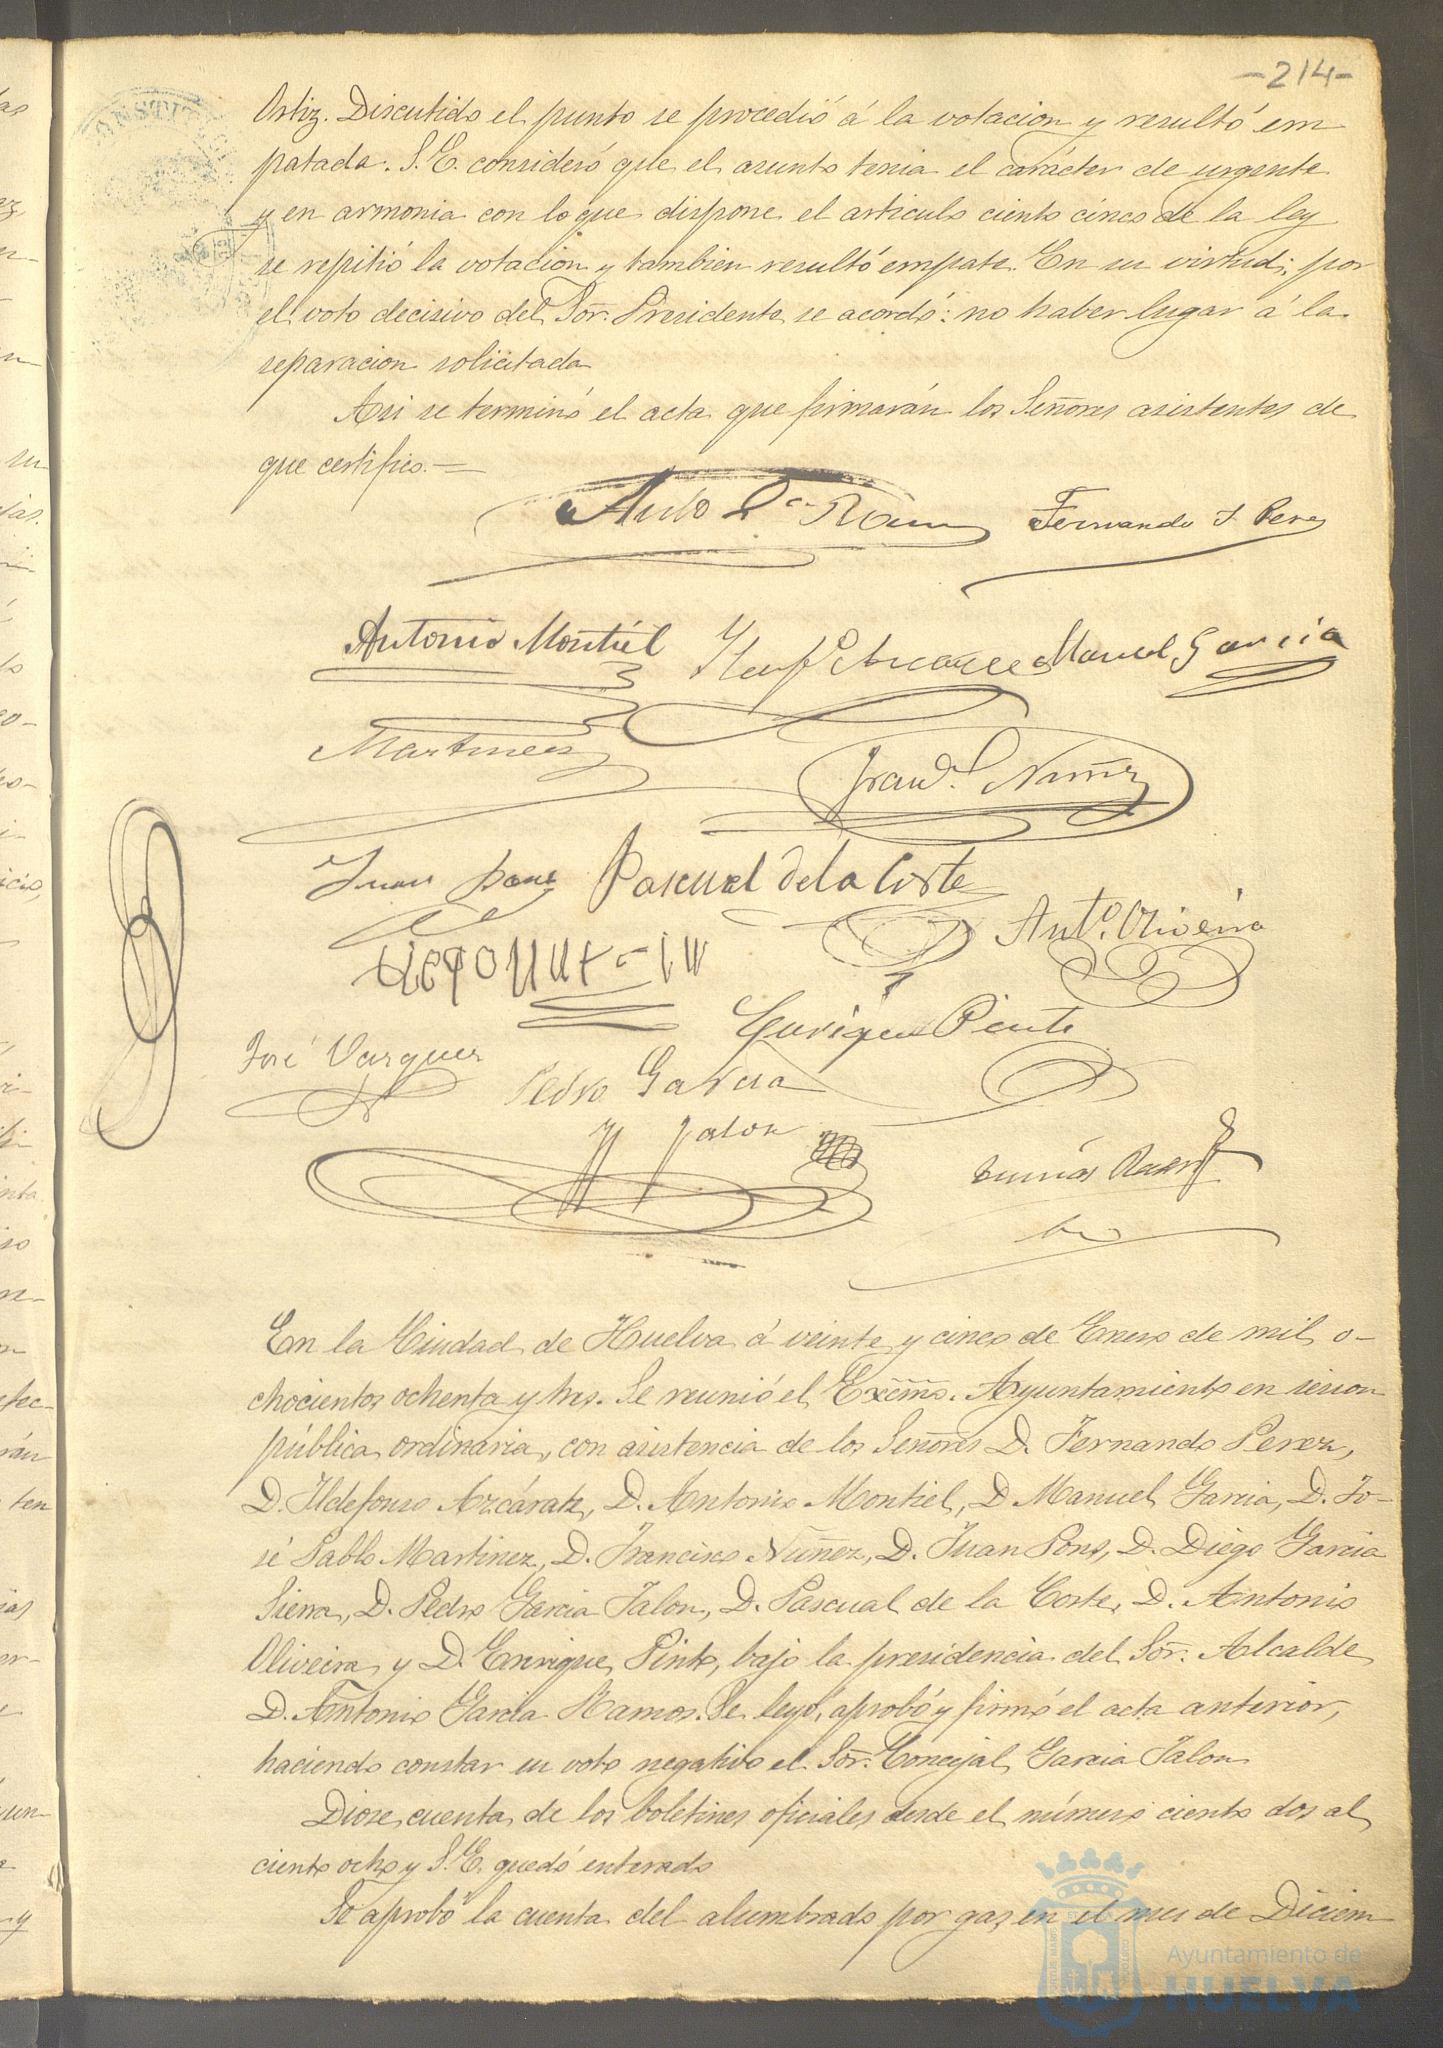 -214-
Ortiz. Discutido el punto se procedió á la votacion y resultó em
patada. S. E. consideró que el asunto tenia el carácter de urgente
y en armonia con lo que dispone el articulo ciento cinco de la ley
se repitió la votacion y tambien resultó empate. En su virtud; por
el voto decisivo del Sor. Presidente se acordó: no haber lugar á la
separacion solicitada
Asi se terminó el acta que firmarán los Señores asistentes de
que certifico.=
Anto Ga Ramos Fernando J. Perez
Antonio Montiel Ildefo Azcarate Manuel Garcia
Martinez Frando Nuñez
Juan Pons Pascual de la Corte
Anto. Oliveira
Enrique Pinto
José Vazquez Pedro Garcia
Jalon
En la Ciudad de Huelva á veinte y cinco de Enero de mil o-
chocientos ochenta y tres. Se reunió el Excmo. Ayuntamiento en sesion
pública ordinaria, con asistencia de los Señores D. Fernando Perez,
D. Ildefonso Azcárate, D. Antonio Montiel, D Manuel Garcia, D. Jo-
sé Pablo Martinez, D. Francisco Nuñez, D. Juan Pons, D. Diego Garcia
Sierra, D. Pedro Garcia Jalon, D. Pascual de la Corte, D. Antonio
Oliveira y D. Enrique Pinto, bajo la presidencia del Sor. Alcalde
D. Antonio Garcia Ramos. Se leyó, aprobó y firmó el acta anterior,
haciendo constar su voto negativo el Sor. Concejal Garcia Jalon
Diose cuenta de los boletines oficiales desde el número ciento dos al
ciento ocho y S. E. quedó enterado
Se aprobó la cuenta del alumbrado por gas, en el mes de Diciem
Ayuntamiento de
HUELVA